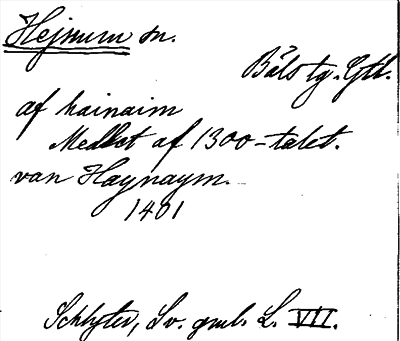 Hejnum sn.
Bäls tg. Gtl.
af hainaim
Medlet af 1300-talet.
van Haynaym.
1401
Schlyter, Sv. gml. L. VII.